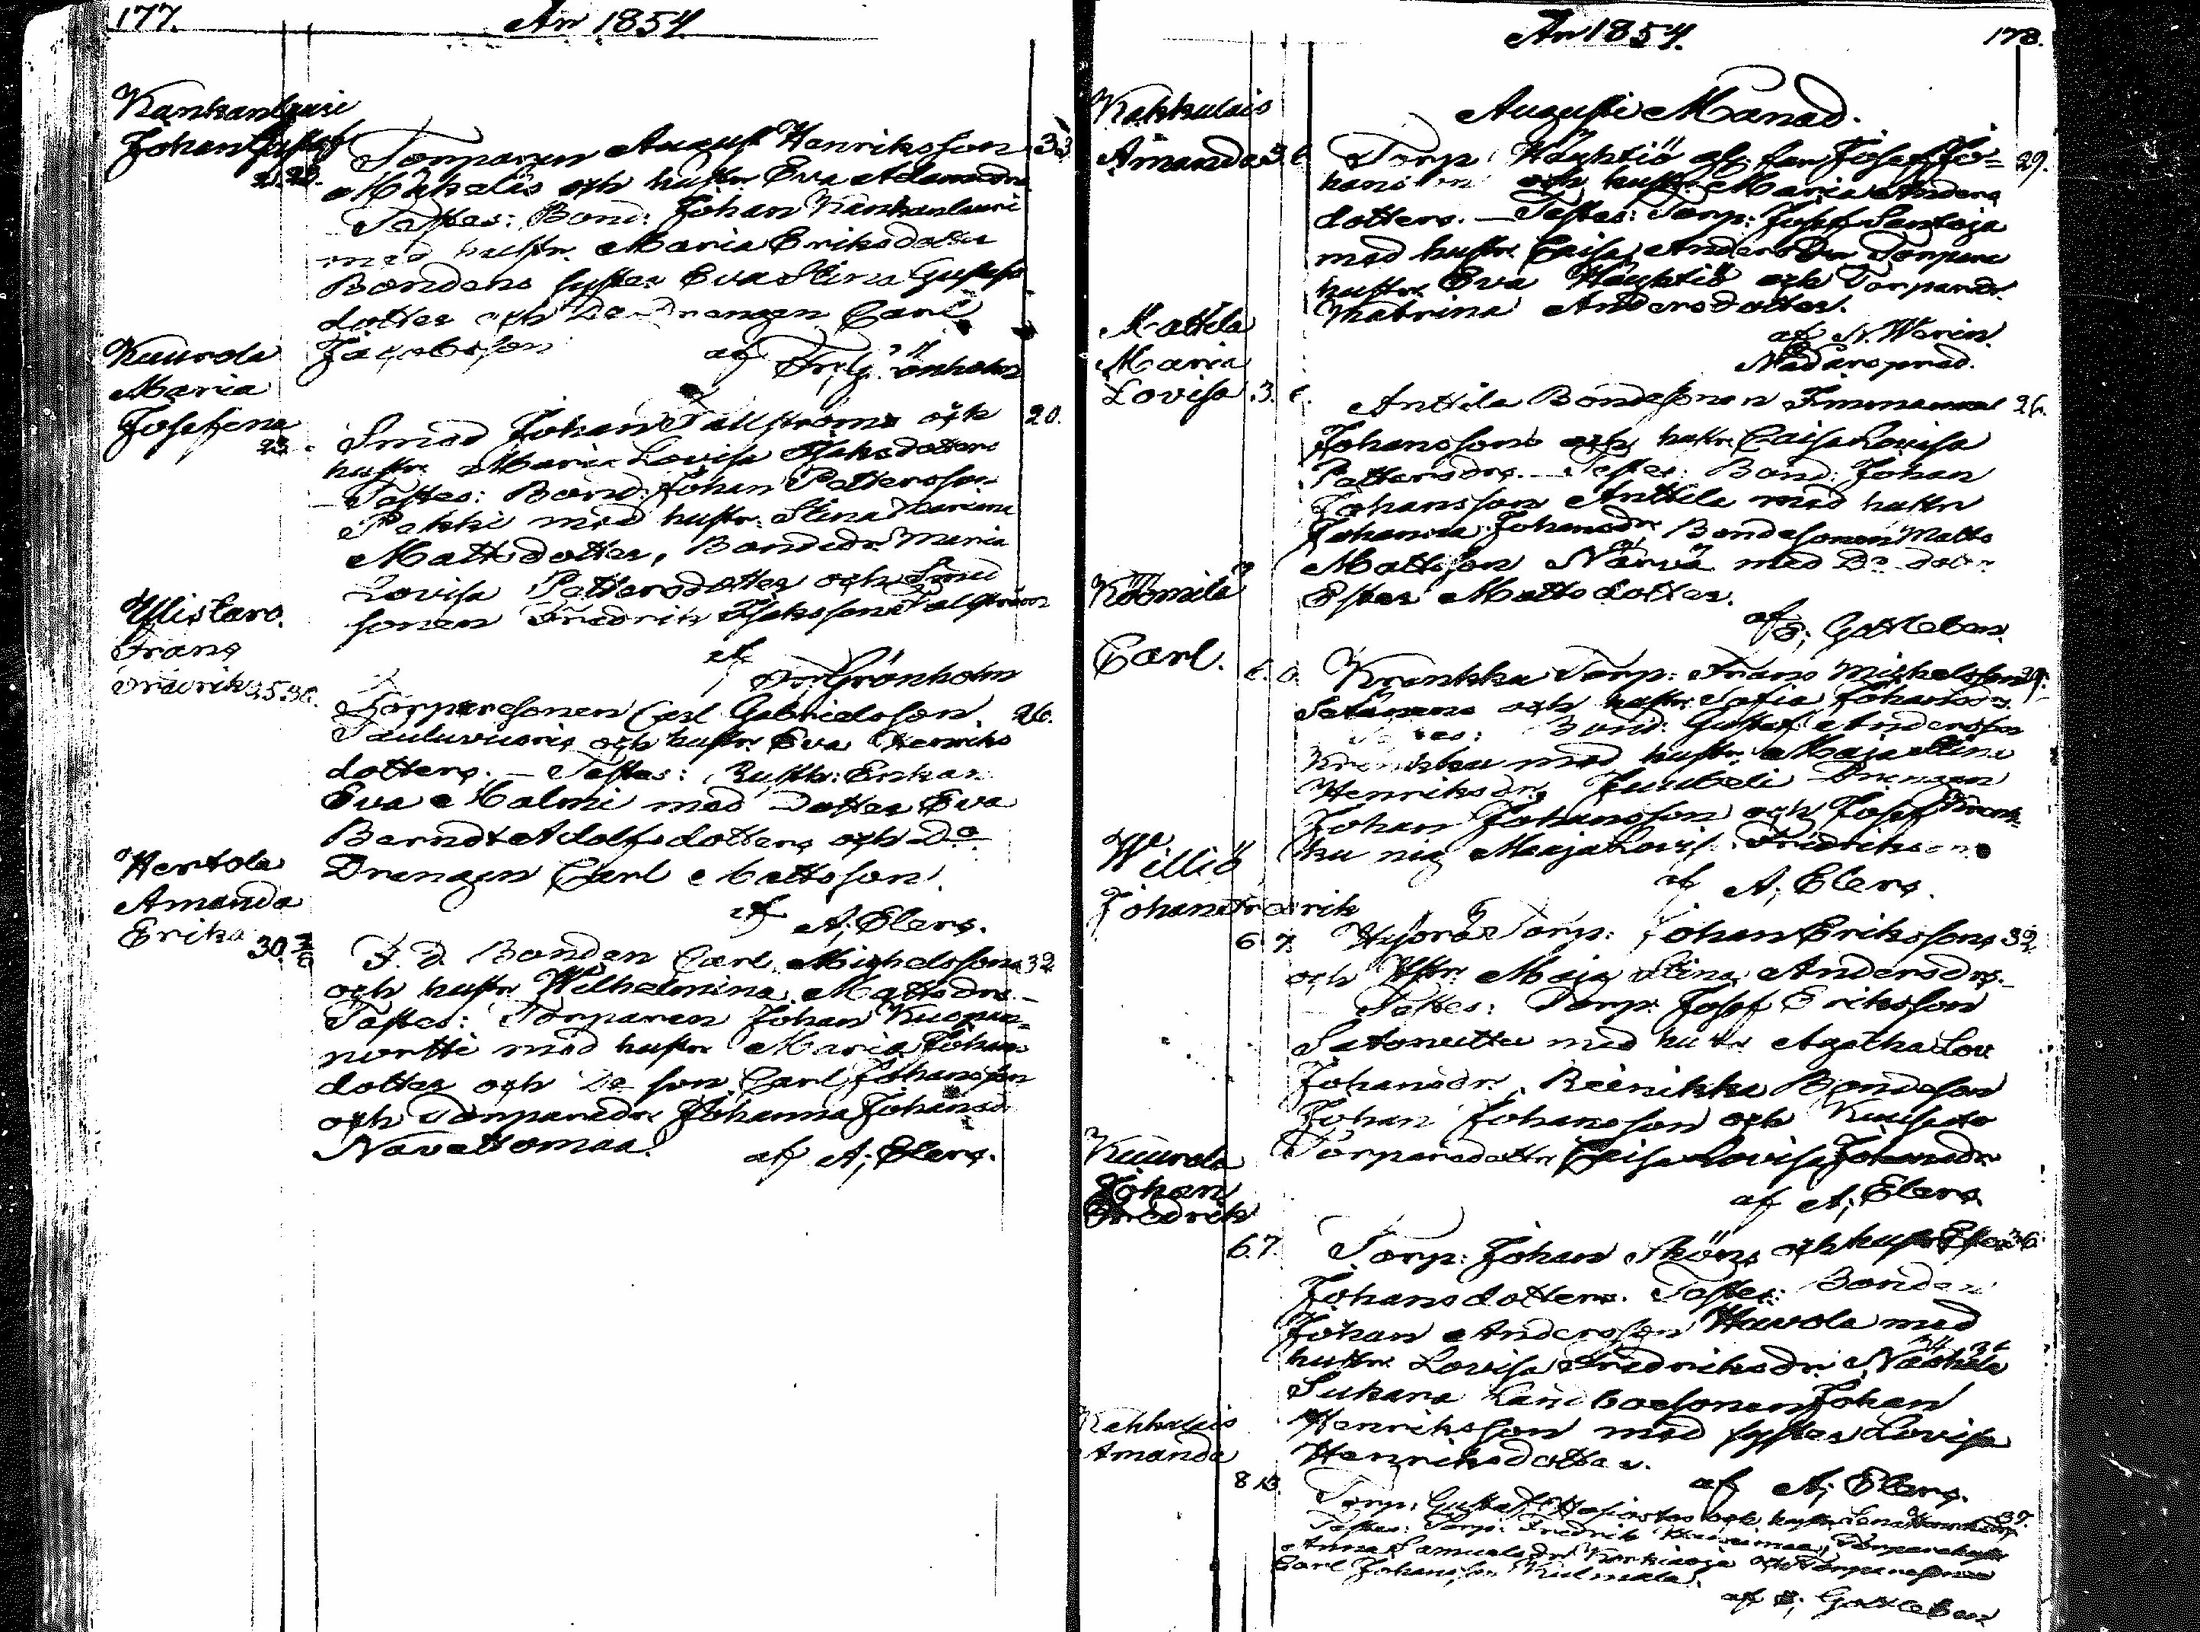 177.
År 1854.
Kankanlauri
Johan Gustaf
Torparen August Henriksson 33.
Mickalis och hustr. Eva Adamsdrs
Testes: Bond: Johan Kankanlauri
med hustr. Maria Eriksdotter
Bondens syster Eva Stina Gustafs
dotter och Do Drängen Carl
Jacobsson
af Fr. Grönholm
Kuurola
Maria
Josefina
23.
Smed Johan Tallströms och 20.
hustr. Maria Lovisa Isaksdotters
Testes: Bond: Johan Pettersson
Pekki med hustr. Stina Mariana
Mattsdotter, Bondedr. Maria
Lovisa Pettersdotter och Smed
sonen Fredrik Isaksson Talström
af
Fr. Grönholm
Ylistaro.
Frans
Fredrik 25. 30.
Torparesonen Carl Gabrielsson 26.
Tauluvuoris och hustr. Eva Henriks
dotters. – Testes: Rusth: Enkan
Eva Malmi med dotter Eva
Berndt Adolfsdotters och Do
Drängen Carl Mattsson.
af A; Elers.
Hertola
Amanda
Erika 30.
F. D. Bonden Carl Michelssons 32
och hustr. Wilhelmina Mattsdrs. –
Testes: Torparen Johan Kuopan=
portti med hustr. Maria Johans
dotter och Do son Carl Johansson
och Torparedr. Johanna Johansdr
Navettomaa.
af A; Elers.
År 1854.
178.
Augusti Månad.
Kakkulais
Amanda 3. 6.
Torp: Häyhtiö Josef Jo= 29.
hansson och hustr. Maria Anders
dotters. – Testes: Torp: Josef Santoja
med hustr. Caisa Andersdr Torpare
hustr. Eva Häyhtiö och Torparedr.
Kathrina Andersdotter.
af N. Warén.
Nådårspred.
Mattila
Maria
Lovisa 3. 6.
Anttila Bondesonen Immanuel 26.
Johanssons och hustr. Caisa Lovisa
Pettersdrs. – Testes: Bond: Johan
Johansson Anttila med hustr
Johanna Johansdr. Bondesonen Matts
Mattsson Närvä med Do dotr
Ester Mattsdotter.
af E; Gottleben.
Köömilä
Carl. 6. 6.
Krankku Torp: Frans Michelsson 29.
Satamans och hustr. Sofia Johansdrs.
Testes: Bond: Gustaf Andersson
Krankku med hustr. Maja Stina
Henriksdr, Juubeli Drängen
Johan Johansson och Josef Krank=
ku pig Maja Lovis. Fredriks
af A; Elers.
Williö
Johan Fredrik
6. 7.
Torp: Johan Erikssons 32.
och Hstr: Maja Stina Andersdrs. –
Testes: Torp: Josef Eriksson
med hustr Agatha Lov
Johansdr., Reinikka Bondeson
Johan Johansson och Kuusisto
Torparedottr Caisa Lovisa Johansdr
af A; Elers.
Kuurola
Johan
Fredrik
6. 7.
Torp: Johan Sköns och hustr. Ester 36.
Johansdotters. Testes: Bonden
Johan Andersson Huvola med
hustr. Lovisa Fredriksdr. Näohele
Sukara Landboesonen Johan
Henriksson med syster Lovisa
Henriksdotter.
af A; Elers.
Kakkulais
Amanda
8. 13.
Torp: Gustaf och hustr. Lena Henriksdrs 37.
Testes: Torp: Fredrik Torparehustr
Anna Samuelsdr Korkiaoja och Torparesonen
Carl Johansson Kulmala.
af E; Gottleben